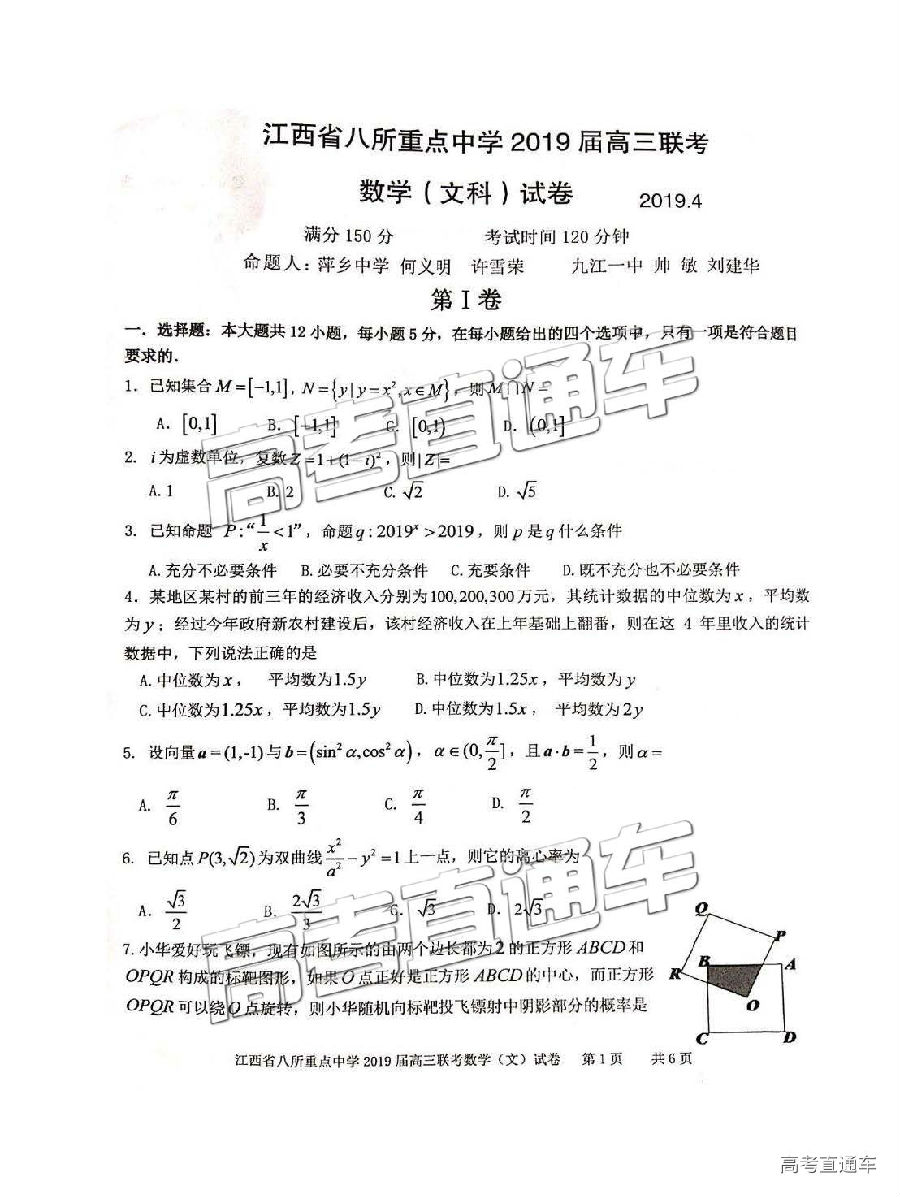 江西省八所重点中学2019届高三联考
数学(文科)试卷 2019.4
满分150分 考试时间120分钟
命题人:萍乡中学 何义明 许雪荣 九江一中 帅 敏 刘建华
第Ⅰ卷
一.选择题:本大题共12小题,每小题5分,在每小题给出的四个选项中,只有一项是符合题目
要求的.
1.已知集合M=[-1,1],N={y|y=x²,x∈M},则M∩N=
A.[0,1] B.[-1,1] C.[0,1) D.(0,1]
2. i为虚数单位,复数Z=1+(1-i)²,则|Z|=
A.1 B.2 C.√2 D.√5
3.已知命题 P:“1/x<1”,命题q:2019ˣ>2019,则p是q什么条件
A.充分不必要条件 B.必要不充分条件 C.充要条件 D.既不充分也不必要条件
4.某地区某村的前三年的经济收入分别为100,200,300万元,其统计数据的中位数为x,平均数
为y;经过今年政府新农村建设后,该村经济收入在上年基础上翻番,则在这 4 年里收入的统计
数据中,下列说法正确的是
A.中位数为x, 平均数为1.5y B.中位数为1.25x,平均数为y
C.中位数为1.25x,平均数为1.5y D.中位数为1.5x, 平均数为2y
5.设向量a=(1,-1)与b=(sin²α,cos²α),α∈(0,π/2],且a·b=1/2,则α=
A. π/6 B. π/3 C. π/4 D. π/2
6.已知点P(3,√2)为双曲线x²/a²-y²=1上一点,则它的离心率为
A. √3/2 B. 2√3/3 C. √3 D. 2√3
7.小华爱好玩飞镖,现有如图所示的由两个边长都为2的正方形ABCD和
OPQR构成的标靶图形,如果O点正好是正方形ABCD的中心,而正方形
OPQR可以绕O点旋转,则小华随机向标靶投飞镖射中阴影部分的概率是
Q
P
B
A
R
O
C
D
江西省八所重点中学2019届高三联考数学(文)试卷 第1页 共6页
高考直通车
高考直通车
高考直通车